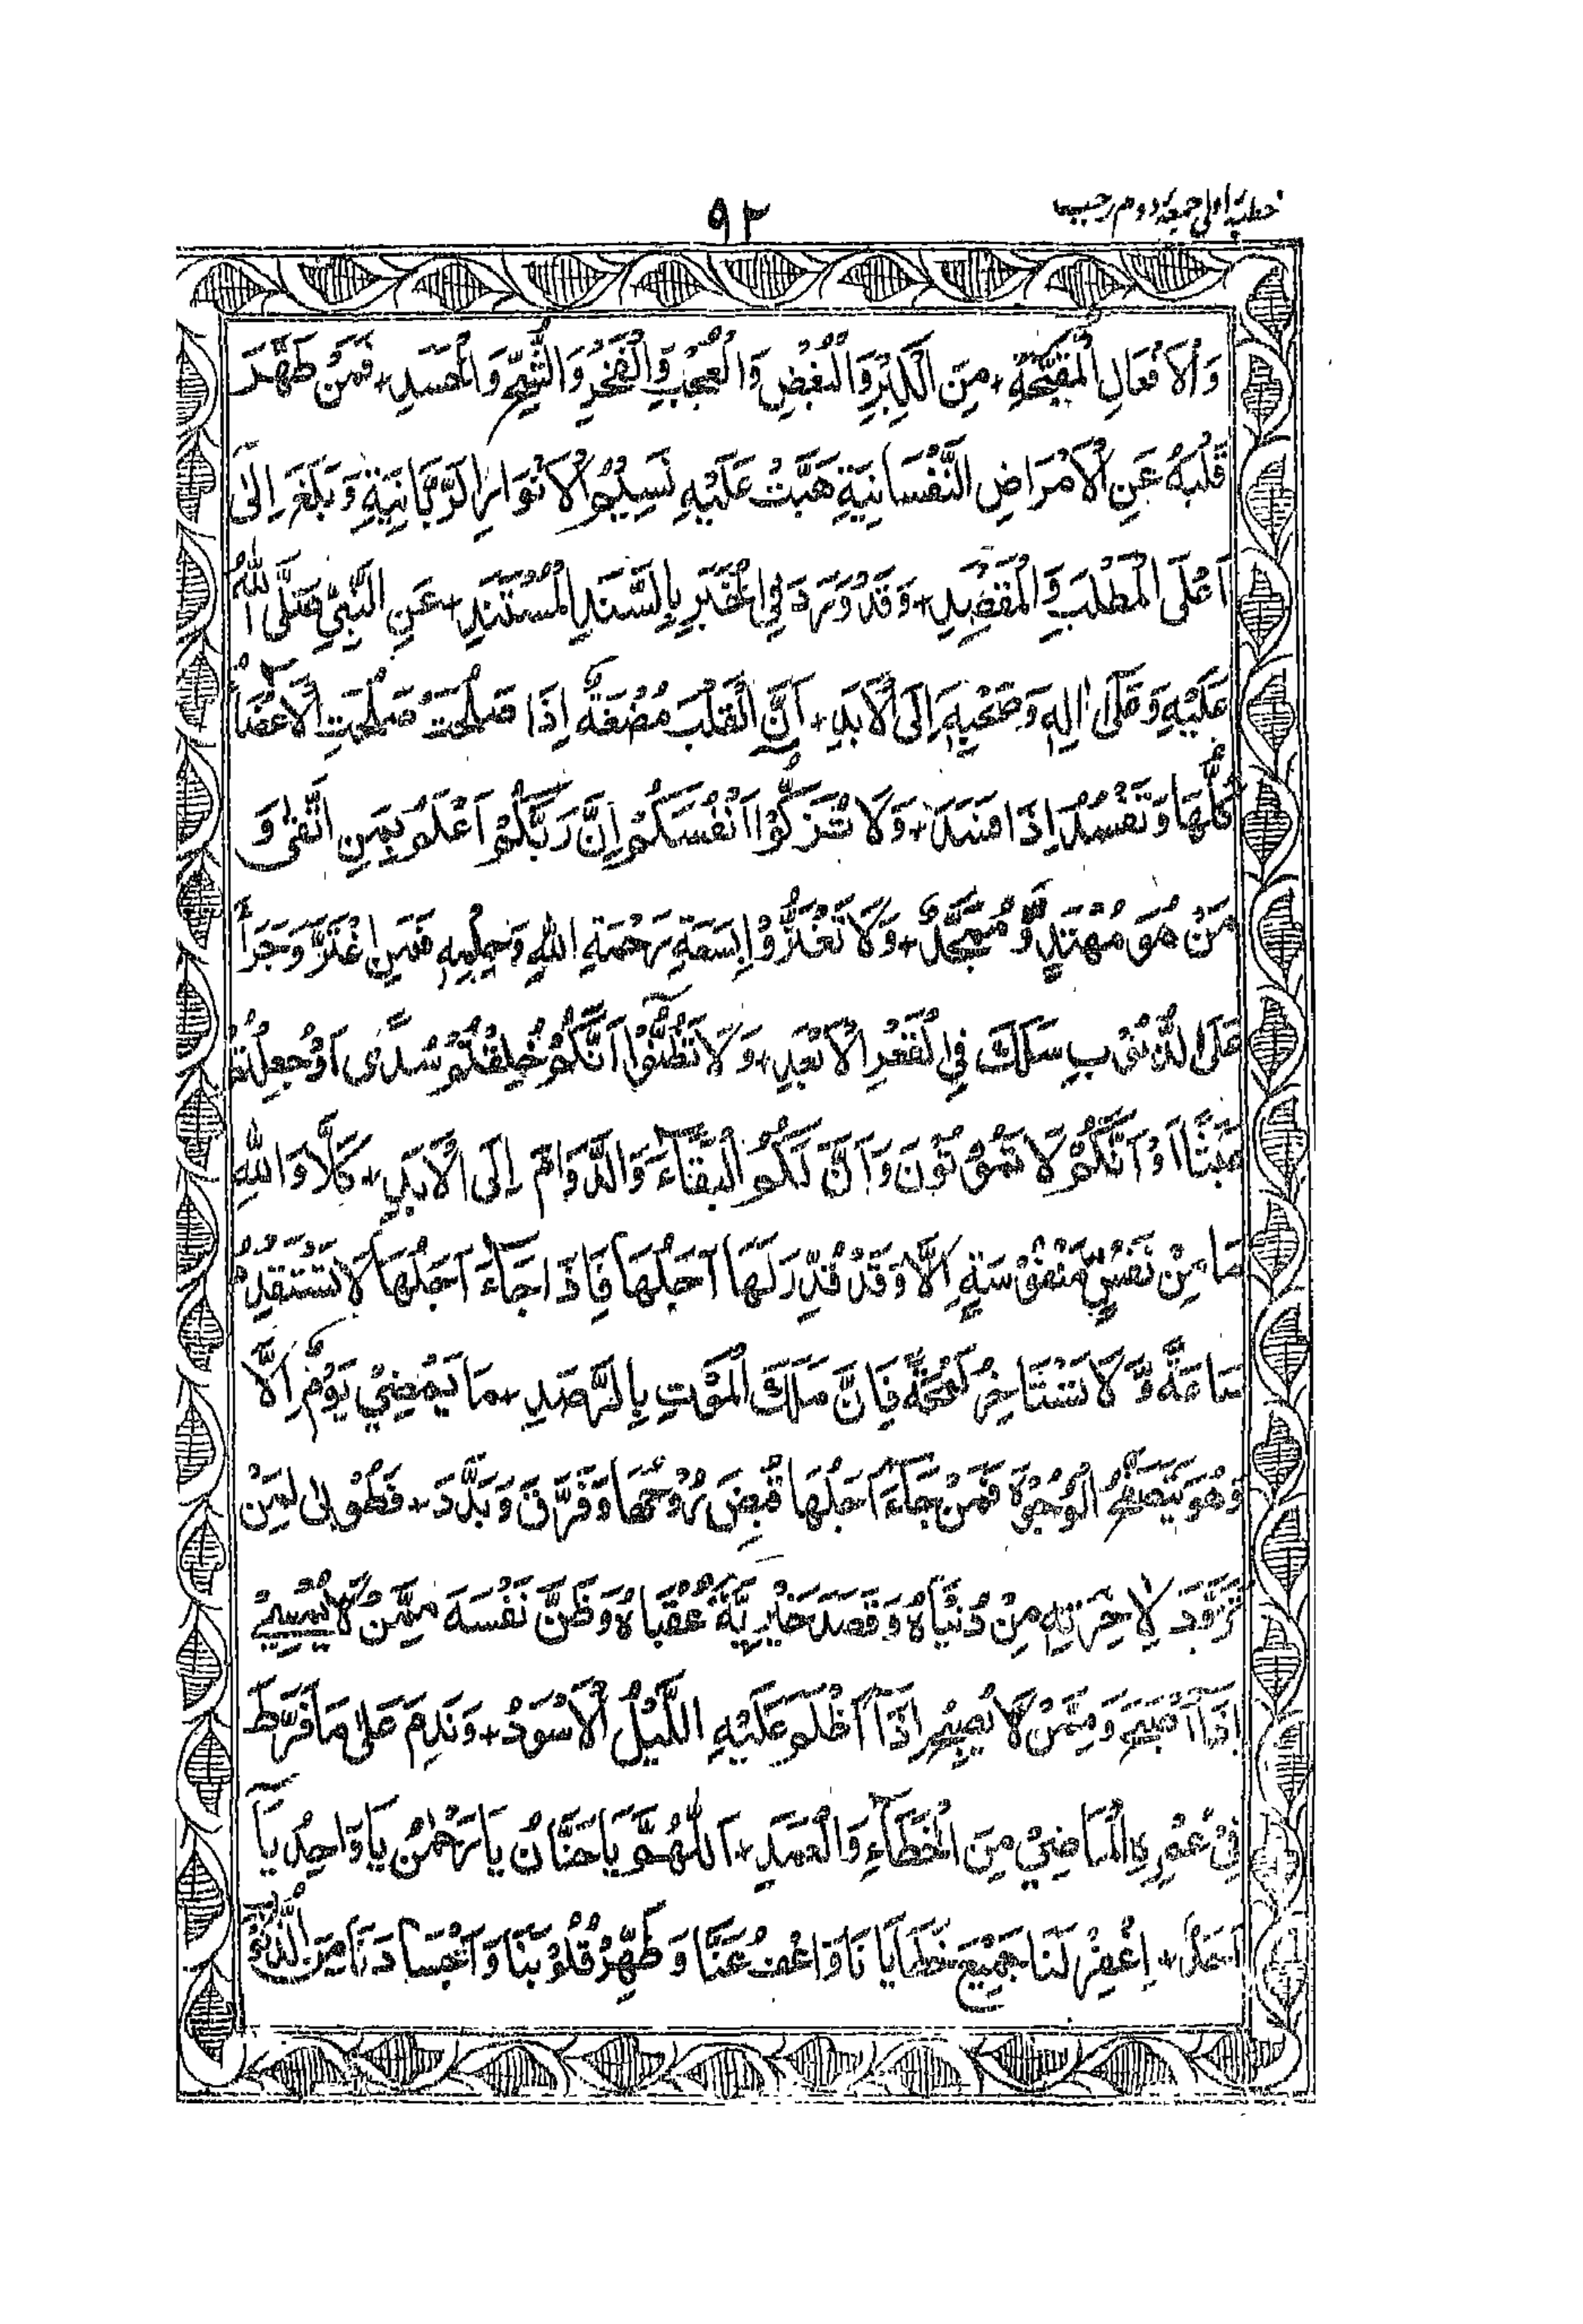 خطبۂ اولی جمعۂ دوم رجب
۹۲
وَالْاَفْعَالِ الْمُقَبَّحَةِ + مِنَ الْكِبْرِ وَالْبُغْضِ وَالْعُجْبِ وَالْفَخْرِ وَالشُّحِّ وَالْحَسَدِ + فَمَنْ طَهَّرَ
قَلْبَهٗ عَنِ الْاَمْرَاضِ النَّفْسَانِيَةِ هَبَّتْ عَلَيْهِ نَسِيْمُ الْاَنْوَارِ الرَّبَّانِيَةِ وَبَلَغَ اِلٰى
اَعْلَى الْمَطْلَبِ وَالْمَقْصِدِ + وَقَدْ وَرَدَ فِي الْخَبَرِ بِالسَّنَدِ الْمُسْتَنَدِ + عَنِ النَّبِيِّ صَلَّى اللهُ
عَلَيْهِ وَعَلٰى اٰلِهٖ وَصَحْبِهٖ اِلَى الْاَبَدِ + اَنَّ الْقَلْبَ مُضْغَةٌ اِذَا صَلُحَتْ صَلُحَتِ الْاَعْضَاءُ
كُلُّهَا وَتَفْسُدُ اِذَا فَسَدَ + وَلَا تُزَكُّوْا اَنْفُسَكُمْ اِنَّ رَبَّكُمْ اَعْلَمُ بِمَنِ اتَّقٰى وَ
مَنْ هُوَ مُهْتَدٍ وَّمُمَجَّدٌ + وَلَا تَغْتَرُّوْا بِسَعَةِ رَحْمَةِ اللهِ وَحِلْمِهٖ فَمَنِ اغْتَرَّ وَجَرَأَ
عَلَى الذُّنُوْبِ سَلَكَ فِي الْقَعْرِ الْاَبْعَدِ + وَلَا تَظُنُّوْا اَنَّكُمْ خُلِقْتُمْ سُدًى اَوْ جُعِلْتُمْ
عَبَثًا اَوْ اَنَّكُمْ لَا تَمُوْتُوْنَ وَاَنَّ لَكُمُ الْبَقَآءَ وَالدَّوَامَ اِلَى الْاَبَدِ + كَلَّا وَاللهِ
مَا مِنْ نَفْسٍ مَنْفُوْسَةٍ اِلَّا وَقَدْ قُدِّرَ لَهَا اَجَلُهَا فَاِذَا جَآءَ اَجَلُهَا لَا تَسْتَقْدِمُ
سَاعَةً وَّلَا تَسْتَاخِرُ لَمْحَةً فَاِنَّ مَلَكَ الْمَوْتِ بِالرَّصَدِ + مَا يَمْضِيْ يَوْمٌ اِلَّا
وَهُوَ يَتَصَفَّحُ الْوُجُوْهَ فَمَنْ جَآءَ اَجَلُهَا قُبِضَ رُوْحُهَا وَفَرَّقَ وَبَدَّدَ + فَطُوْبٰى لِمَنْ
تَزَوَّدَ لِاٰخِرَتِهٖ مِنْ دُنْيَاهُ وَقَصَدَ خَيْرِيَّةَ عُقْبَاهُ وَظَنَّ نَفْسَهٗ مِمَّنْ لَا يُمْسِيْ
اِذَا اَصْبَحَ وَمِمَّنْ لَا يُصْبِحُ اِذَا اَظْلَمَ عَلَيْهِ اللَّيْلُ الْاَسْوَدُ + وَنَدِمَ عَلٰى مَا فَرَّطَ
فِيْ عُمُرِهِ الْمَاضِيْ مِنَ الْخَطَآءِ وَالْعَمَدِ + اَللّٰهُمَّ يَا حَنَّانُ يَا رَحْمٰنُ يَا وَاحِدُ يَآ
اَحَدُ + اِغْفِرْ لَنَا جَمِيْعَ خَطَايَا نَا وَاعْفُ عَنَّا وَطَهِّرْ قُلُوْبَنَا وَاَجْسَادَنَا مِنَ الذُّنُوْبِ